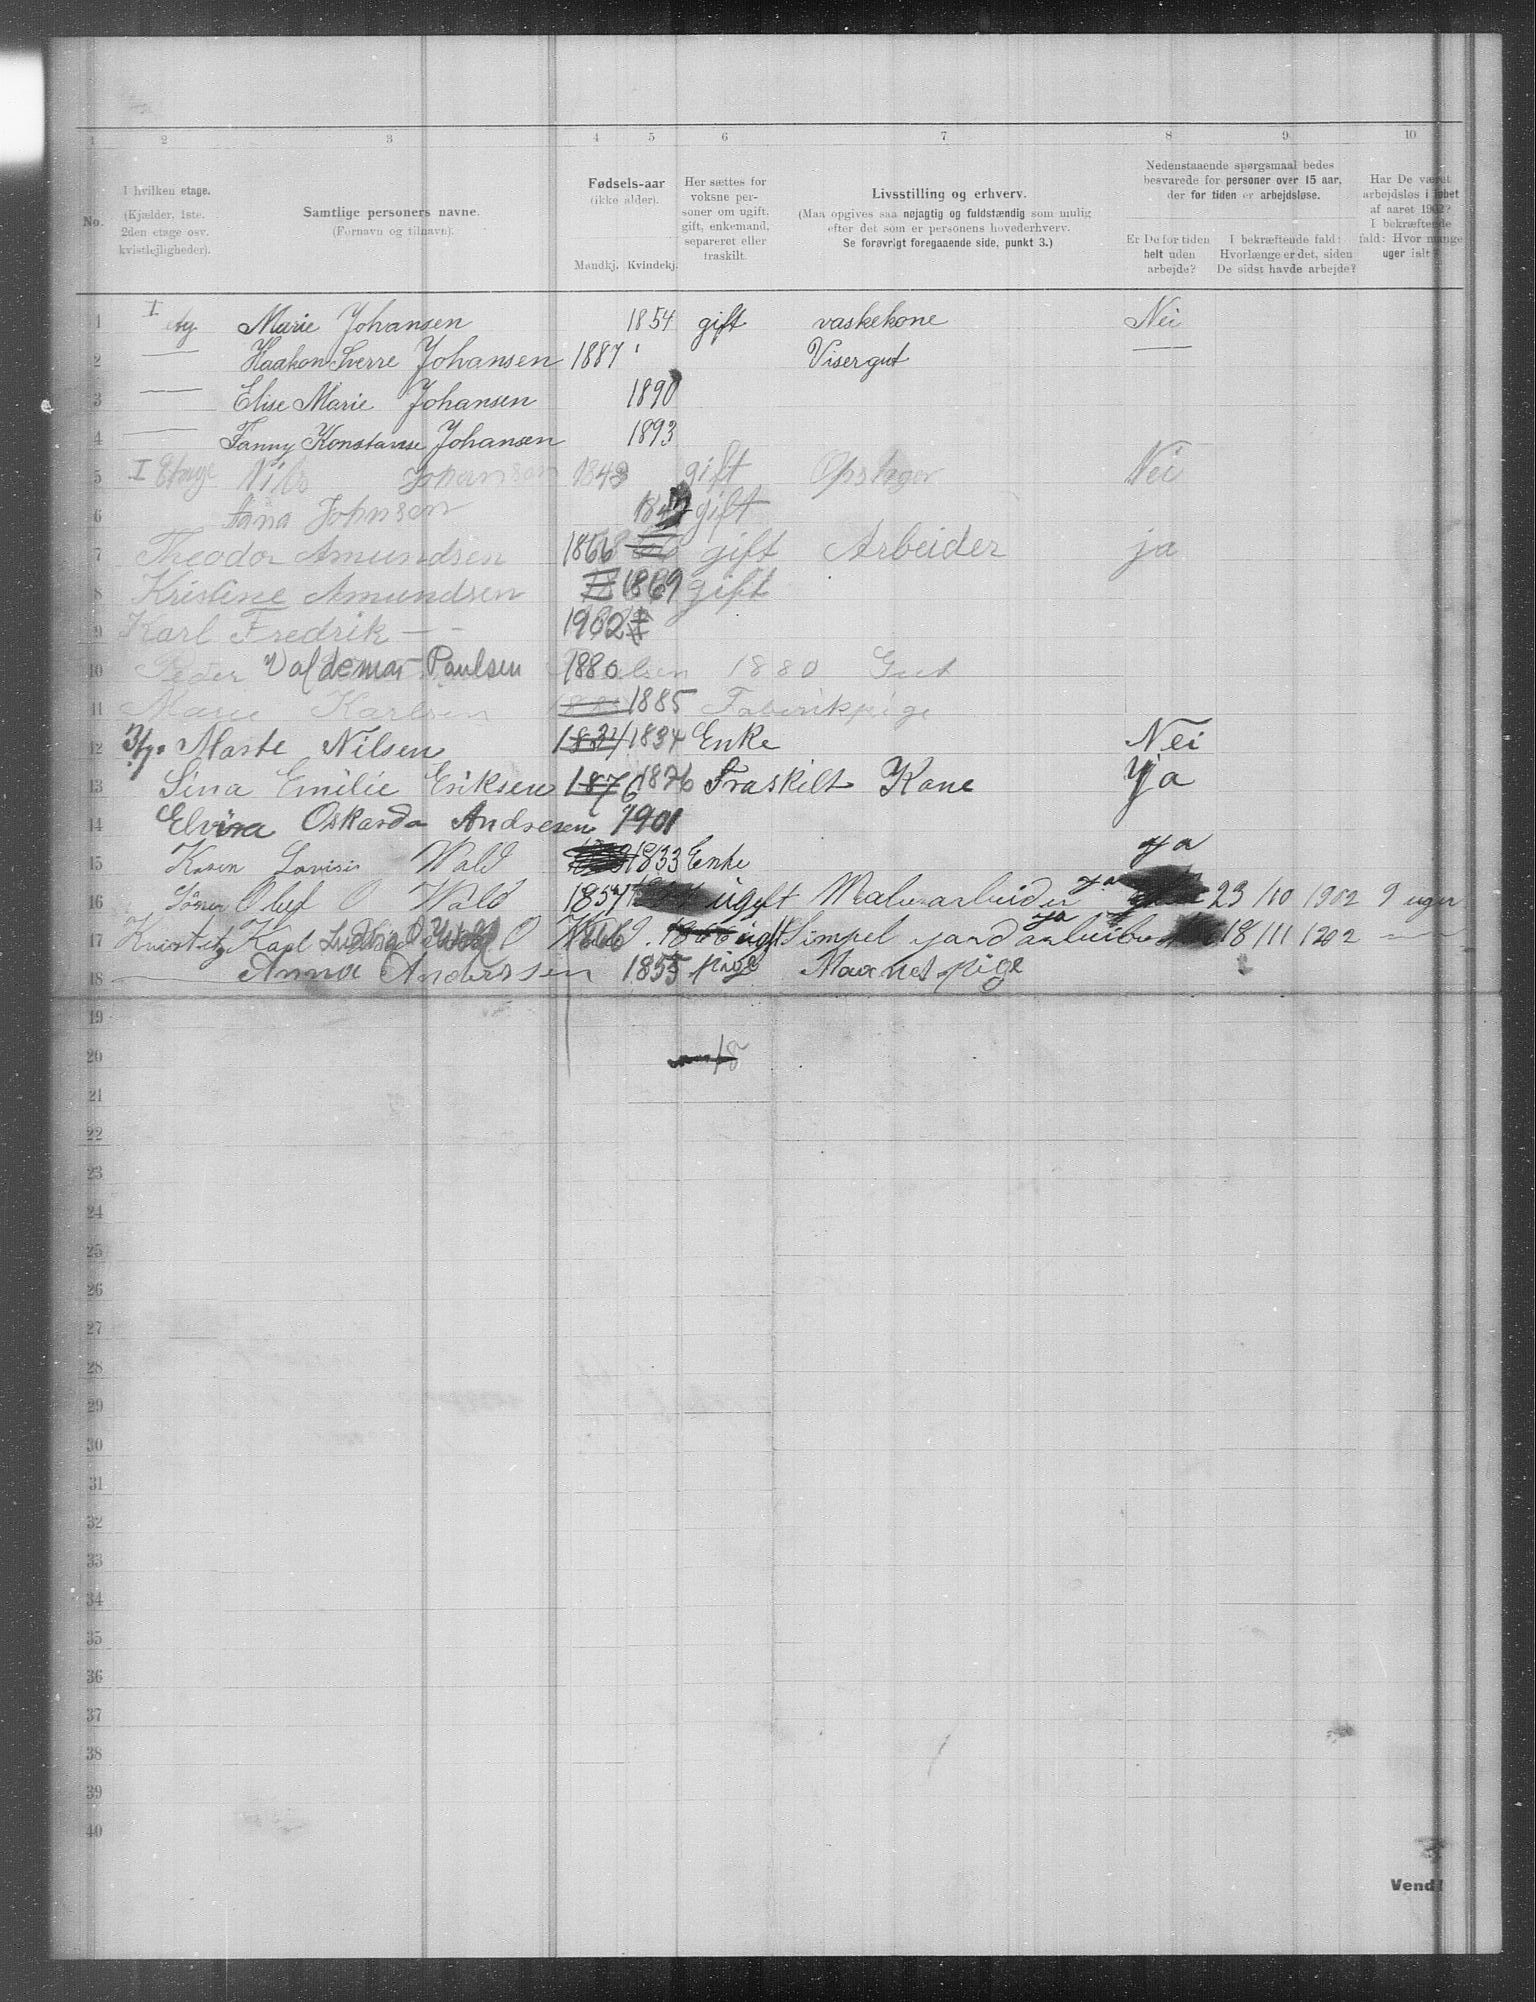 1 2 3 4 5 6 7 8 9 10
No.
I hvilken etage.
(Kjælder, 1ste. 2den etage osv. kvistlejligheder).
Samtlige personers navne.
(Fornavn og tilnavn).
Fødsels-aar
(ikke alder).
Mandkj. Kvindekj.
Her sættes for voksne personer om ugift, gift, enkemand, separeret eller fraskilt.
Livsstilling og erhverv.
(Maa opgives saa nøjagtig og fuldstændig som mulig efter det som er personens hovederhverv.
Se forøvrigt foregaaende side, punkt 3.)
Nedenstaaende spørgsmaal bedes besvarede for personer over 15 aar, der for tiden er arbejdsløse.
Er De for tiden helt uden arbejde?
I bekræftende fald: Hvorlænge er det, siden De sidst havde arbejde?
Har De været arbejdsløs i løbet af aaret 1902? I bekræftende fald: Hvor mange uger ialt?
1 I etg. Marie Johansen 1854 gift vaskekone Nei
2 — Haakon Sverre Johansen 1887 Visergut —
3 — Elise Marie Johansen 1890
4 — Fanny Konstanse Johansen 1893
5 I Etage Nils Johansen 1843 gift Opslager Nei
6 Johnsen gift
7 Theodor Amundsen 1866 gift Arbeider ja
8 Kristine Amundsen 1869 gift
9 Karl Fredrik — - 1902
10 Peder Valdemar Paulsen 1880 1880 Gut
11 Marie Karlsen 1885 Fabrikpige
12 Marte Nilsen 1834 1834 Enke Nei
13 Lina Emilie Eriksen 1876 1876 Fraskilt Kone Ja
14 Elvira Oskarda Andresen 1901
15 Karen Lovisie Wald 1833 Enke ja
16 Oluf O Wald 1857 ugift ja 23/10 1902 9 uger
17 Kvist etg Karl O 1866 ugift Simpel ja 18/11 1902 —
18 — Anna Anderssen 1855 pige
19
20 18
21
22
23
24
25
26
27
28
29
30
31
32
33
34
35
36
37
38
39
40
Vend!